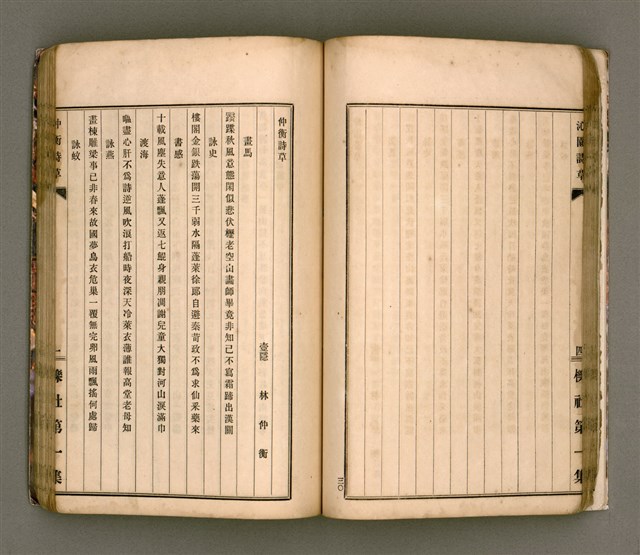 沁園詩草
四
櫟社第一集
三〇
仲衡詩草
壺隱 林仲衡
畫馬
蹀躞秋風意態閒似悲伏櫪老空山畫師畢竟非知己不寫霜蹄出漢關
詠史
樓閣金銀跌蕩開三千弱水隔蓬萊徐郎自避秦苛政不爲求仙釆藥來
書感
十載風塵失意人蓬飄又返七鯤身親朋凋謝兒童大獨對河山淚滿巾
渡海
嘔盡心肝不爲詩逆風吹浪打船時夜深天冷萊衣薄誰報高堂老母知
詠燕
畫棟雕梁事已非春來故國夢烏衣危巢一覆無完卵風雨飄搖何處歸
詠蚊
仲衡詩草
一
櫟社第一集